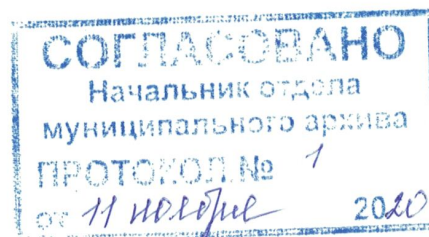 СОГЛАСОВАНО
Начальник отдела
муниципального архива
ПРОТОКОЛ № 1
от 11 ноября 2020